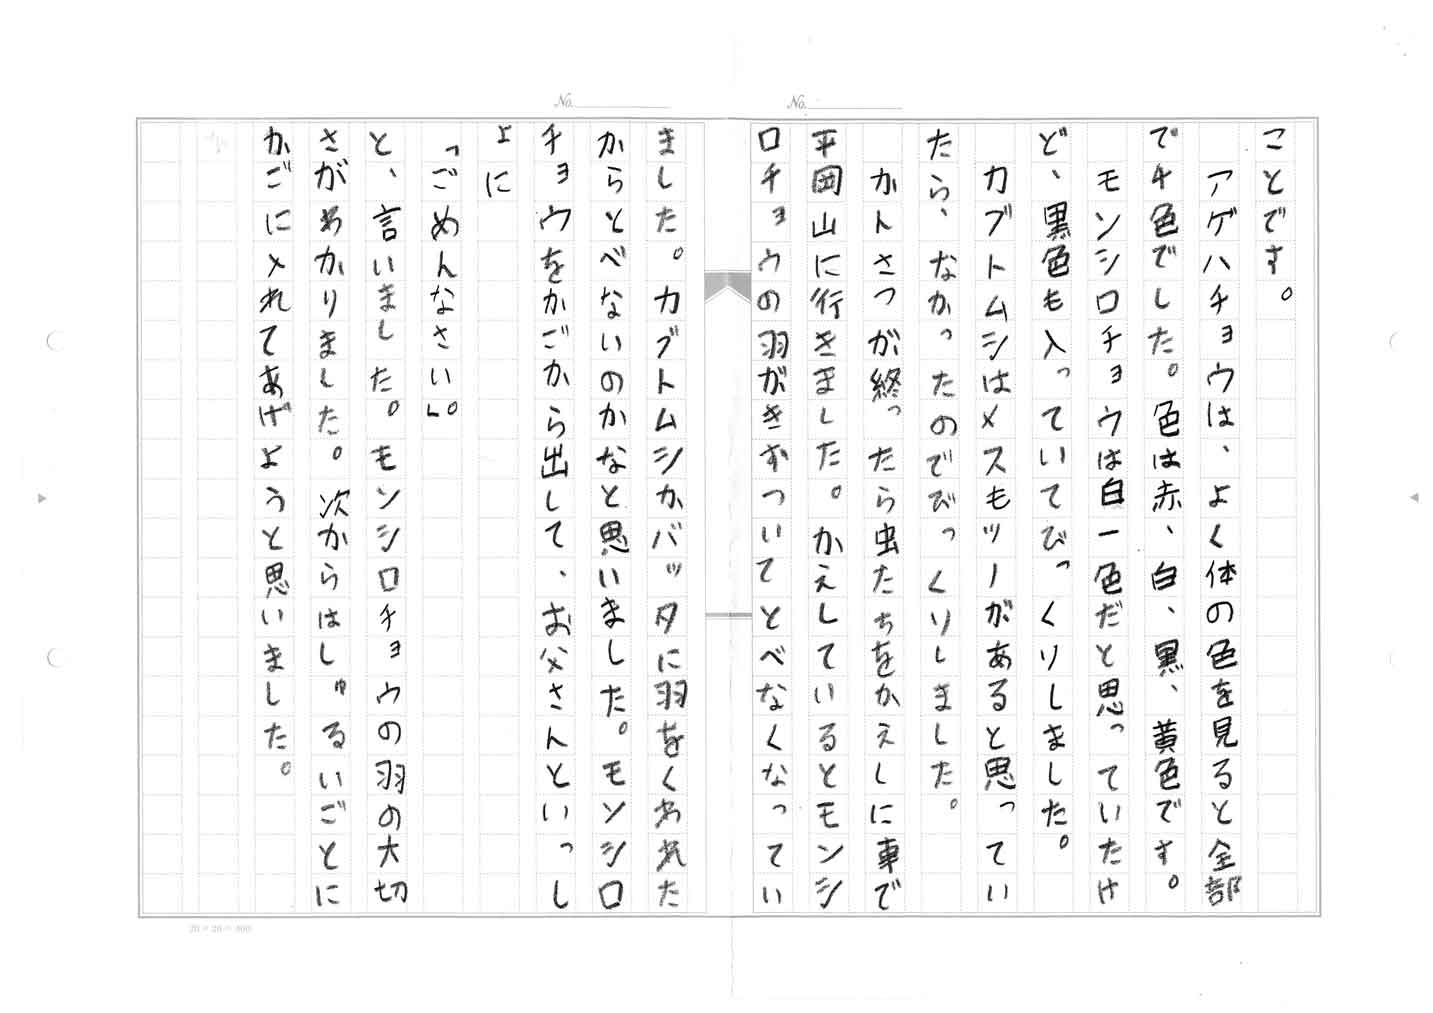 No.
No.
ことです。
アゲハチョウは、よく体の色を見ると全部
で4色でした。色は赤、白、黒、黄色です。
モンシロチョウは白一色だと思っていたけ
ど、黒色も入っていてびっくりしました。
カブトムシはメスもツノがあると思ってい
たら、なかったのでびっくりしました。
かんさつが終ったら虫たちをかえしに車で
平岡山に行きました。かえしているとモンシ
ロチョウの羽がきずついてとべなくなってい
ました。カブトムシかバッタに羽をくわれた
からとべないのかなと思いました。モンシロ
チョウをかごから出して、お父さんといっし
ょに
「ごめんなさい」。
と、言いました。モンシロチョウの羽の大切
さがわかりました。次からはしゅるいごとに
かごに入れてあげようと思いました。
20×20=400